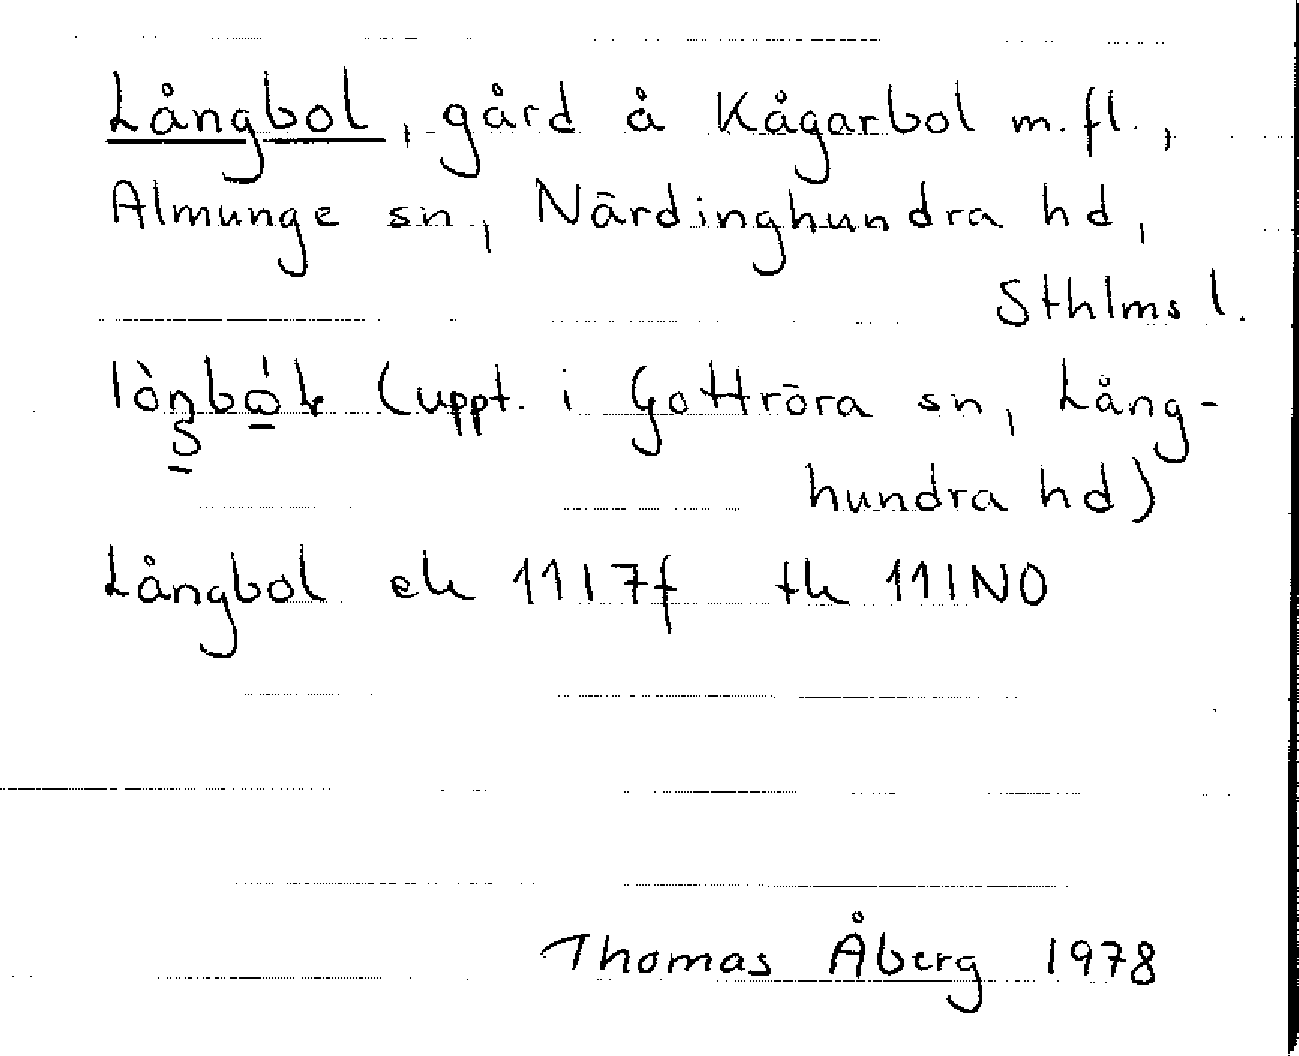 Långbol, gård å Kågarbol m.fl.,
Almunge sn, Närdinghundra hd,
Sthlms l.
(uppt. i Gottröra sn, Lång-
hundra hd)
Långbol ek 11I7f tk 11INO
Thomas Åberg 1978